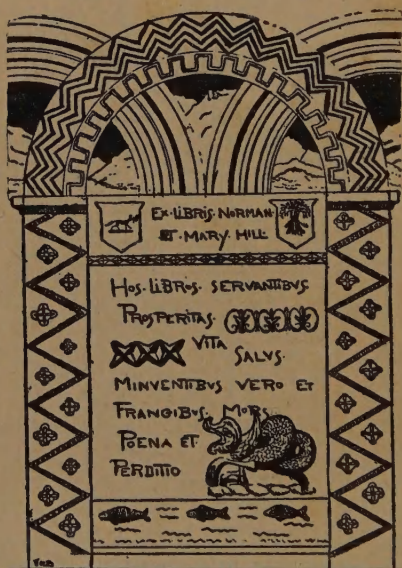 EX·LIBRIS·NORMAN
ET·MARY·HILL
HOS·LIBROS·SERVANTIBVS
PROSPERITAS
VITA
SALVS·
MINVENTIBVS VERO ET
FRANGIBVS·MORS
POENA ET
PERDITIO